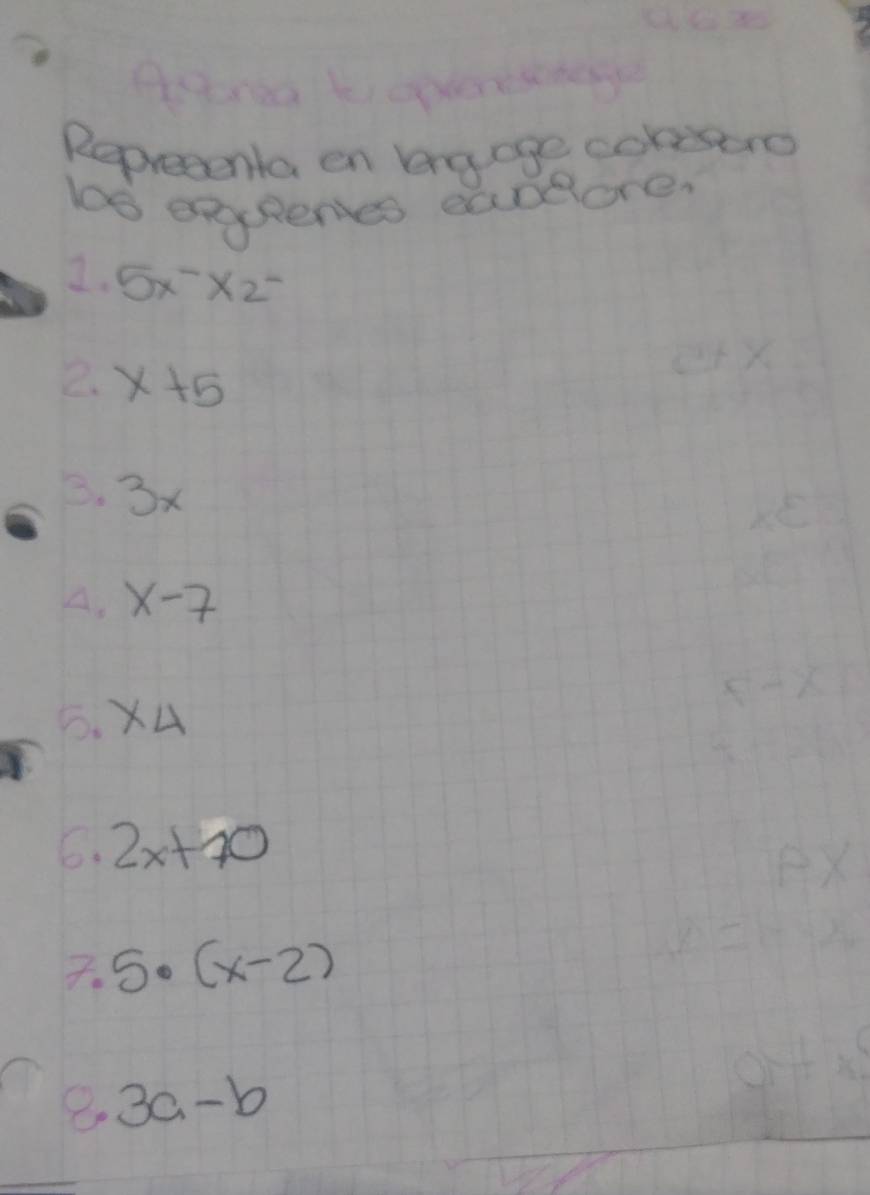 Afianza tu aprendizaje
Representa en lenguage cotidiano
las siguientes ecuacione.
1. 5x - x2 -
2. x + 5
3. 3x
4. x - 7
5. x4
6. 2x + 10
7. 5 • (x - 2)
8. 3a - b